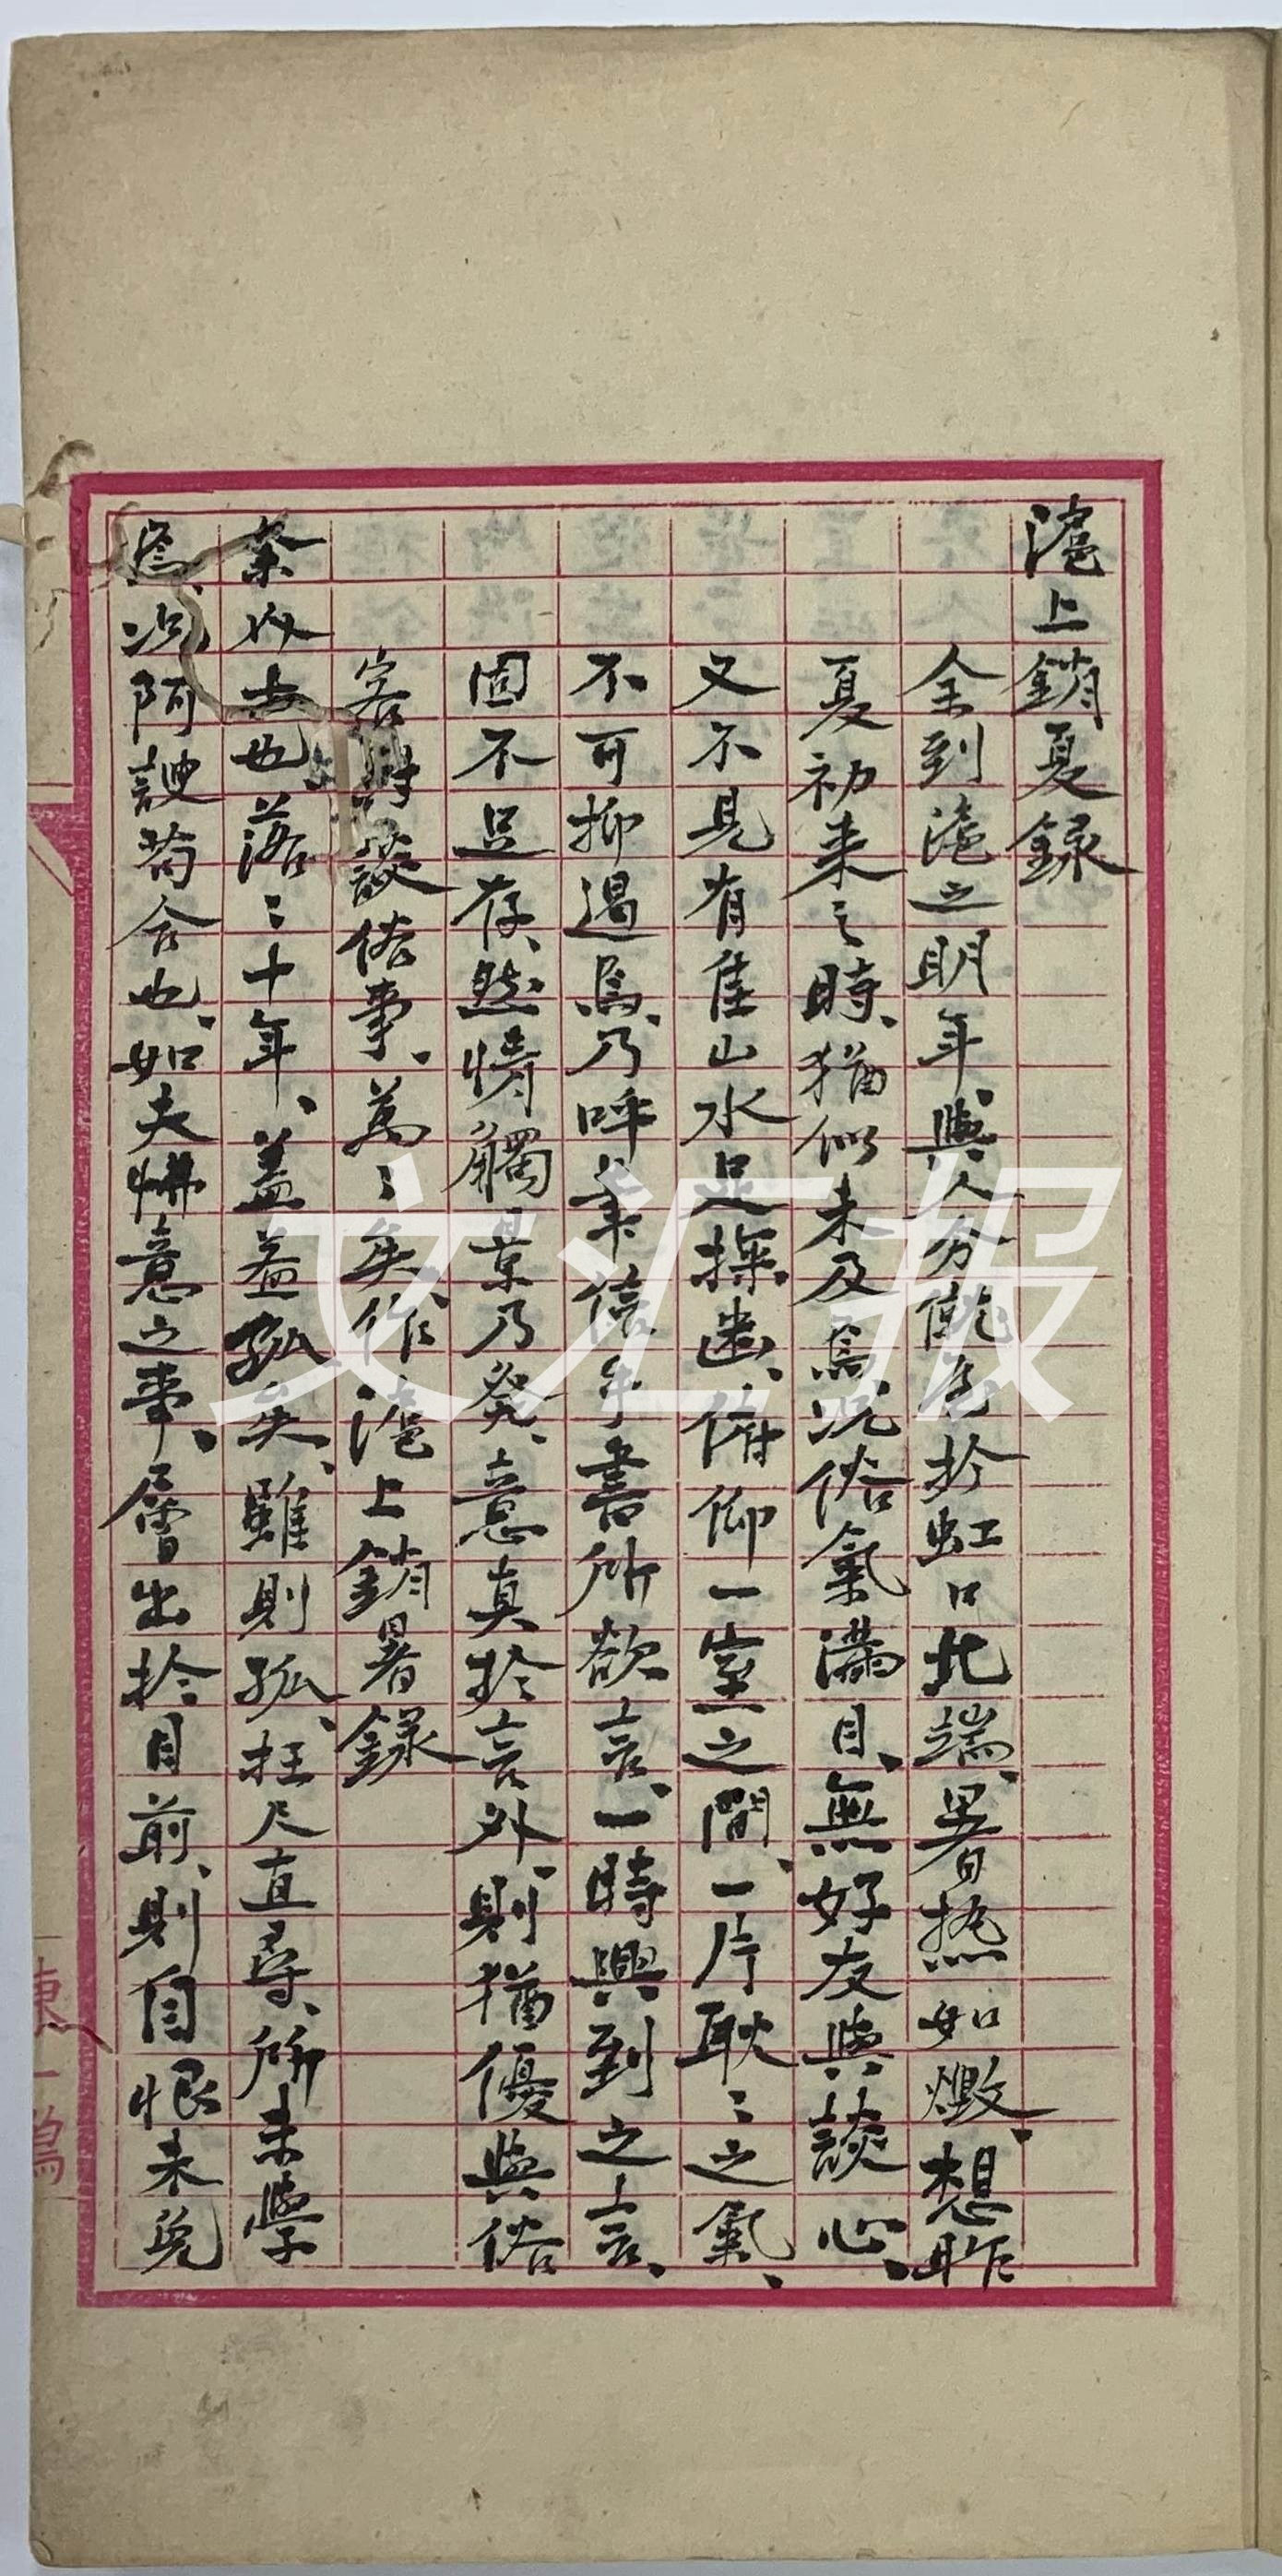 滬上銷夏錄
余到滬之明年、與人分僦屋於虹口北端、暑热如燬、想昨
夏初来之時、猶似未及焉、况俗氣滿目、無好友與談心、
又不見有佳山水足探幽、俯仰一室之間、一片耿〻之氣、
不可抑遏焉、乃呼筆信手書所欲言、一時興到之言、
固不足存、然情觸景乃發、意真於言外、則猶優與俗
客談俗事、萬〻矣、作滬上銷暑錄
余也、落〻十年、蓋益孤矣、雖則孤、枉尺直尋、所未學
焉、况阿諛苟合也、如夫怫意之事、層出於目前、則自恨未免
文汇报